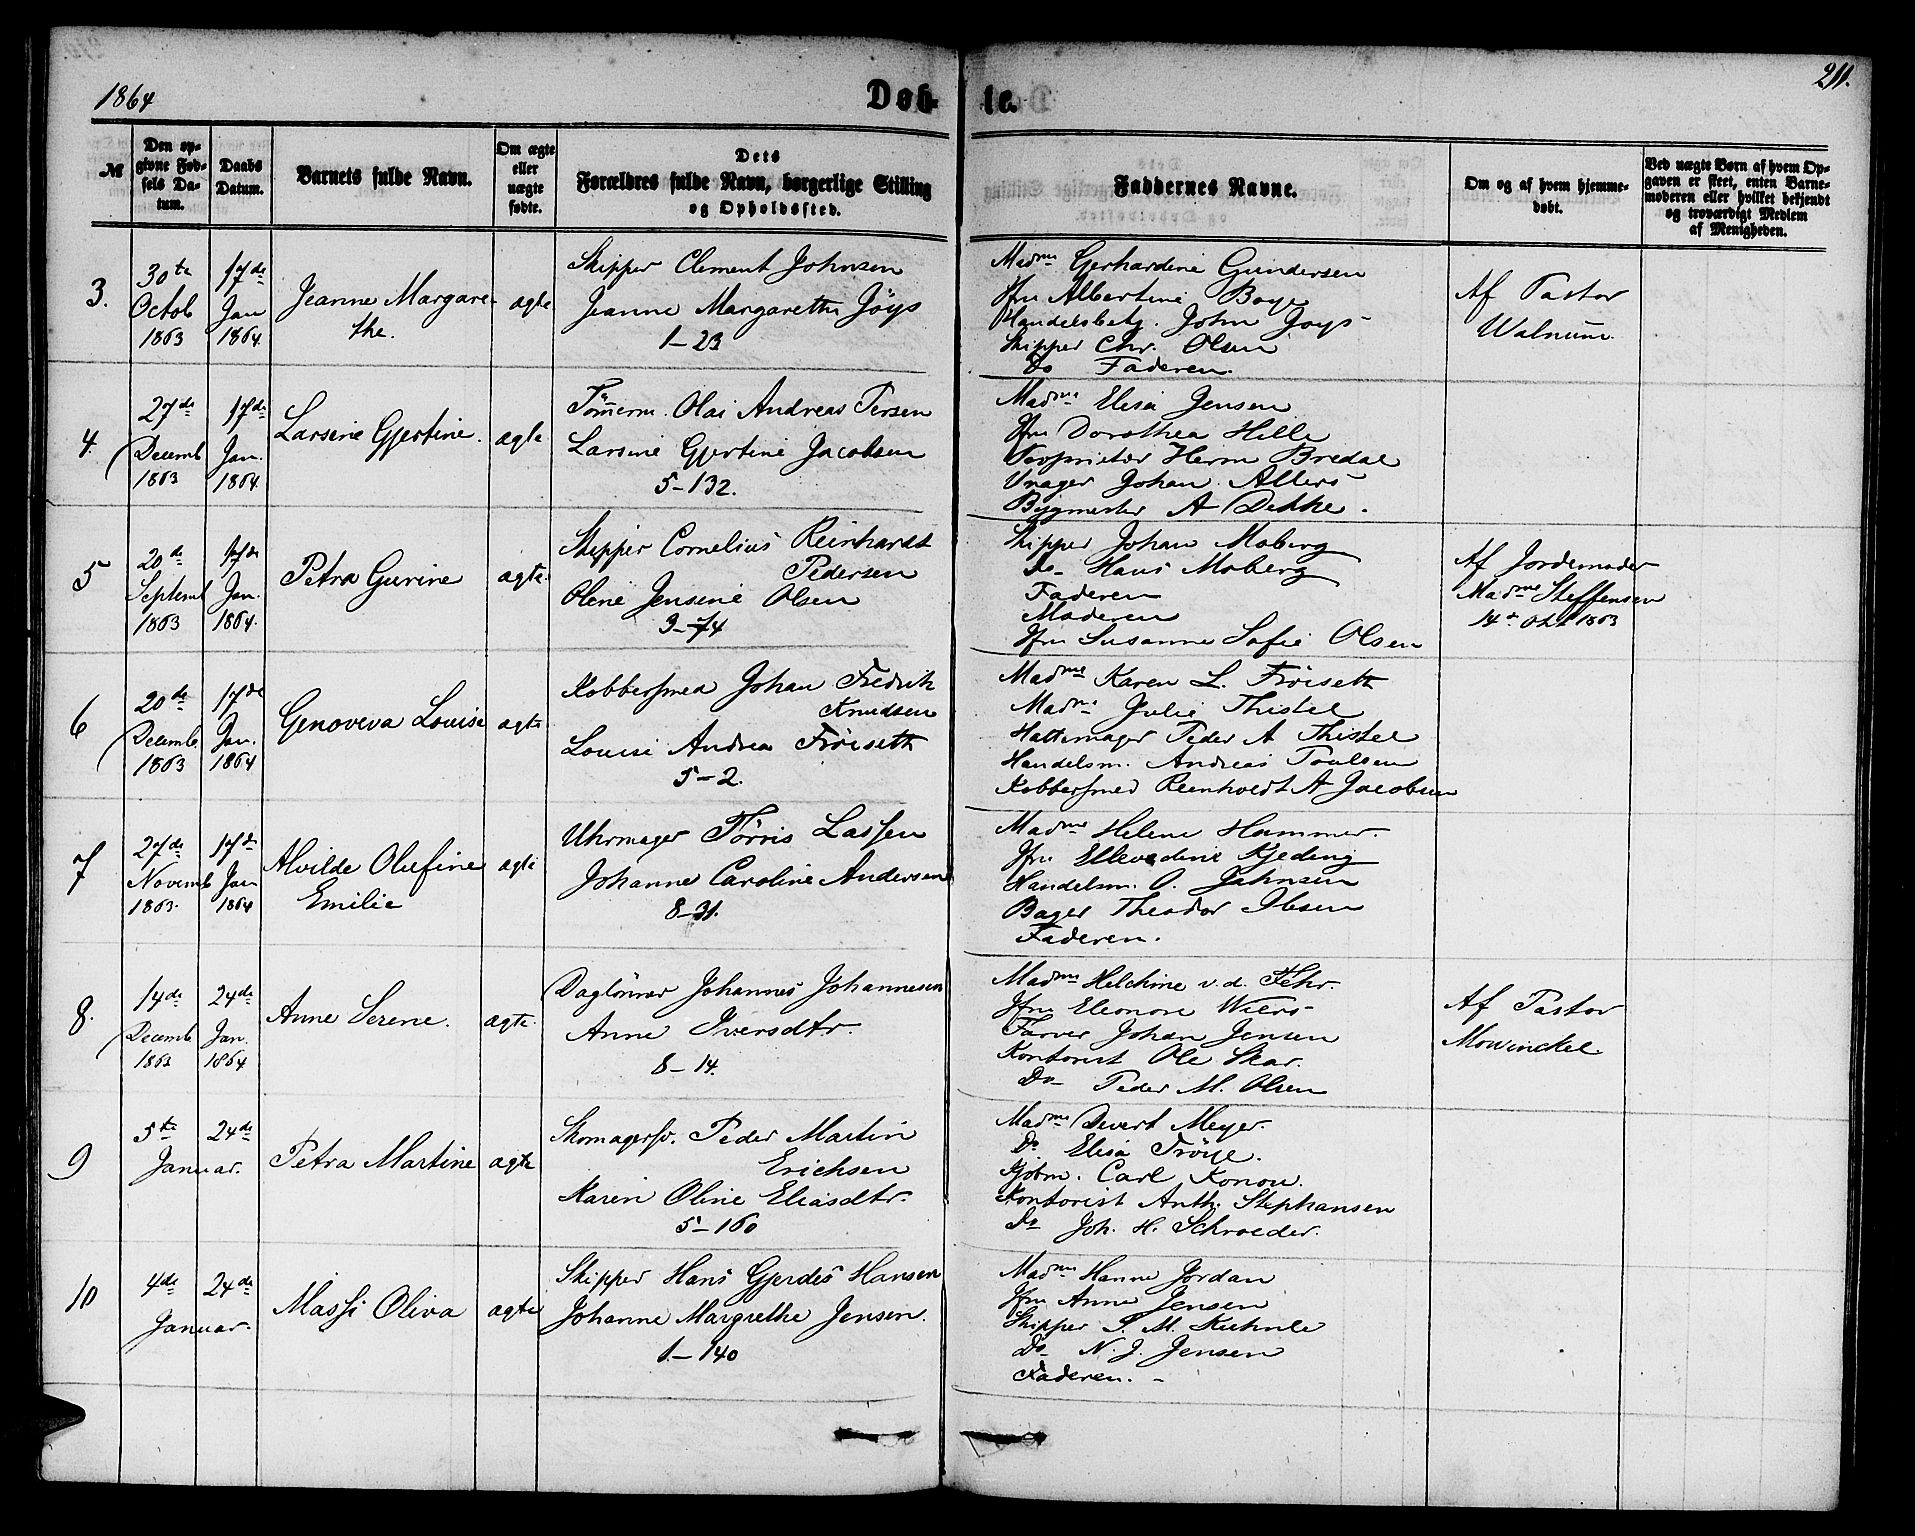 1864
Døb-
te.
211.
№
Den op-
givne Fød-
sels Da-
tum.
Daabs
Datum.
Barnets fulde Navn.
Om ægte
eller
uægte
fødte.
Dets
Forældres fulde Navn, borgerlige Stilling
og Opholdssted.
Faddernes Navne.
Om og af hvem hjemme-
døbt.
Ved uægte Børn af hvem Op-
gaven er skeet, enten Barne-
moderen eller hvilket bekjendt
og troværdigt Medlem
af Menigheden.
3.
30te
Octob
1863
17de
Jan
1864.
Jeanne Margare-
the.
ægte
Skipper Clement Johnsen
Jeanne Margarethe Jøys
1-23
Madme Gerhardine Gundersen
Jfru Albertine Boye
Handelsbetj. John Joys
Skipper Chr. Olsen
Do Faderen.
Af Pastor
Walnum.
4.
27de
Decemb
1863
17de
Jan.
1864.
Larsine Gjertine.
ægte
Tømmerm. Olai Andreas Persen
Larsine Gjertine Jacobsen
5-132.
Madme Elisa Jensen
Jfru Dorothea Hille
Proprietær Herm Bredal
Urmager Johan Allers
Bygmester A Dekke.
5
20de
Septemb
1863
17de
Jan.
1864.
Petra Gurine
ægte.
Skipper Cornelius Reinhardt
Pedersen
Oline Jensine Olsen
3-74
Skipper Johan Moberg
Do Hans Moberg
Faderen
Moderen
Jfru Susanne Sofie Olsen
Af Jordemoder
Madme Steffensen
14de Okt 1863
6
20de
Decemb
1863
17de
Jan.
1864
Genoveva Louise
ægte
Kobbersmed Johan Fredrik
Knudsen
Louise Andrea Frøiseth
5-2.
Madme Karen L. Frøiseth
Madme Julie Thistel
Hattemager Peder A Thistel
Handelsm. Andreas Poulsen
Kobbersmed Reenholdt A Jacobsen
7
27de
Novemb
1863.
17de
Jan
1864
Alvilde Olufine
Emilie
ægte
Uhrmager Tørris Lassen
Johanne Caroline Andersen
8-31.
Madme Helene Hammer.
Jfru Ellevedine Kjeding
Handelsm. O. Jahnsen
Bager Theodor Ibsen
Faderen.
8.
14de
Decemb
1863
24de
Jan.
1864
Anne Serene.
ægte.
Daglönner Johannes Johannesen
Anne Iversdtr.
8-14.
Madme Helchine v.d. Fehr.
Jfru Eleonore Wiers
Farver Johan Jensen
Kontorist Ole Skar.
Do Peder M. Olsen
Af Pastor
Mowinckel
9
5te
24de
Januar.
Petra Martine
ægte
Skomagersv. Peder Martin
Erichsen
Karen Oline Eliasdtr.
5-160
Madme Severt Meyer.
Do Elisa Trøye.
Kjøbm. Carl Konow.
Kontorist Anth. Stephansen
Do Joh. H. Schroeder.
10
4de
24de
Januar.
Massi Oliva
ægte
Skipper Hans Gjerdes Hansen
Johanne Margrethe Jensen.
1-140
Madme Hanne Jordan
Jfru Anne Jensen
Skipper P. M. Kuhnle
Do N. J. Jensen
Faderen.